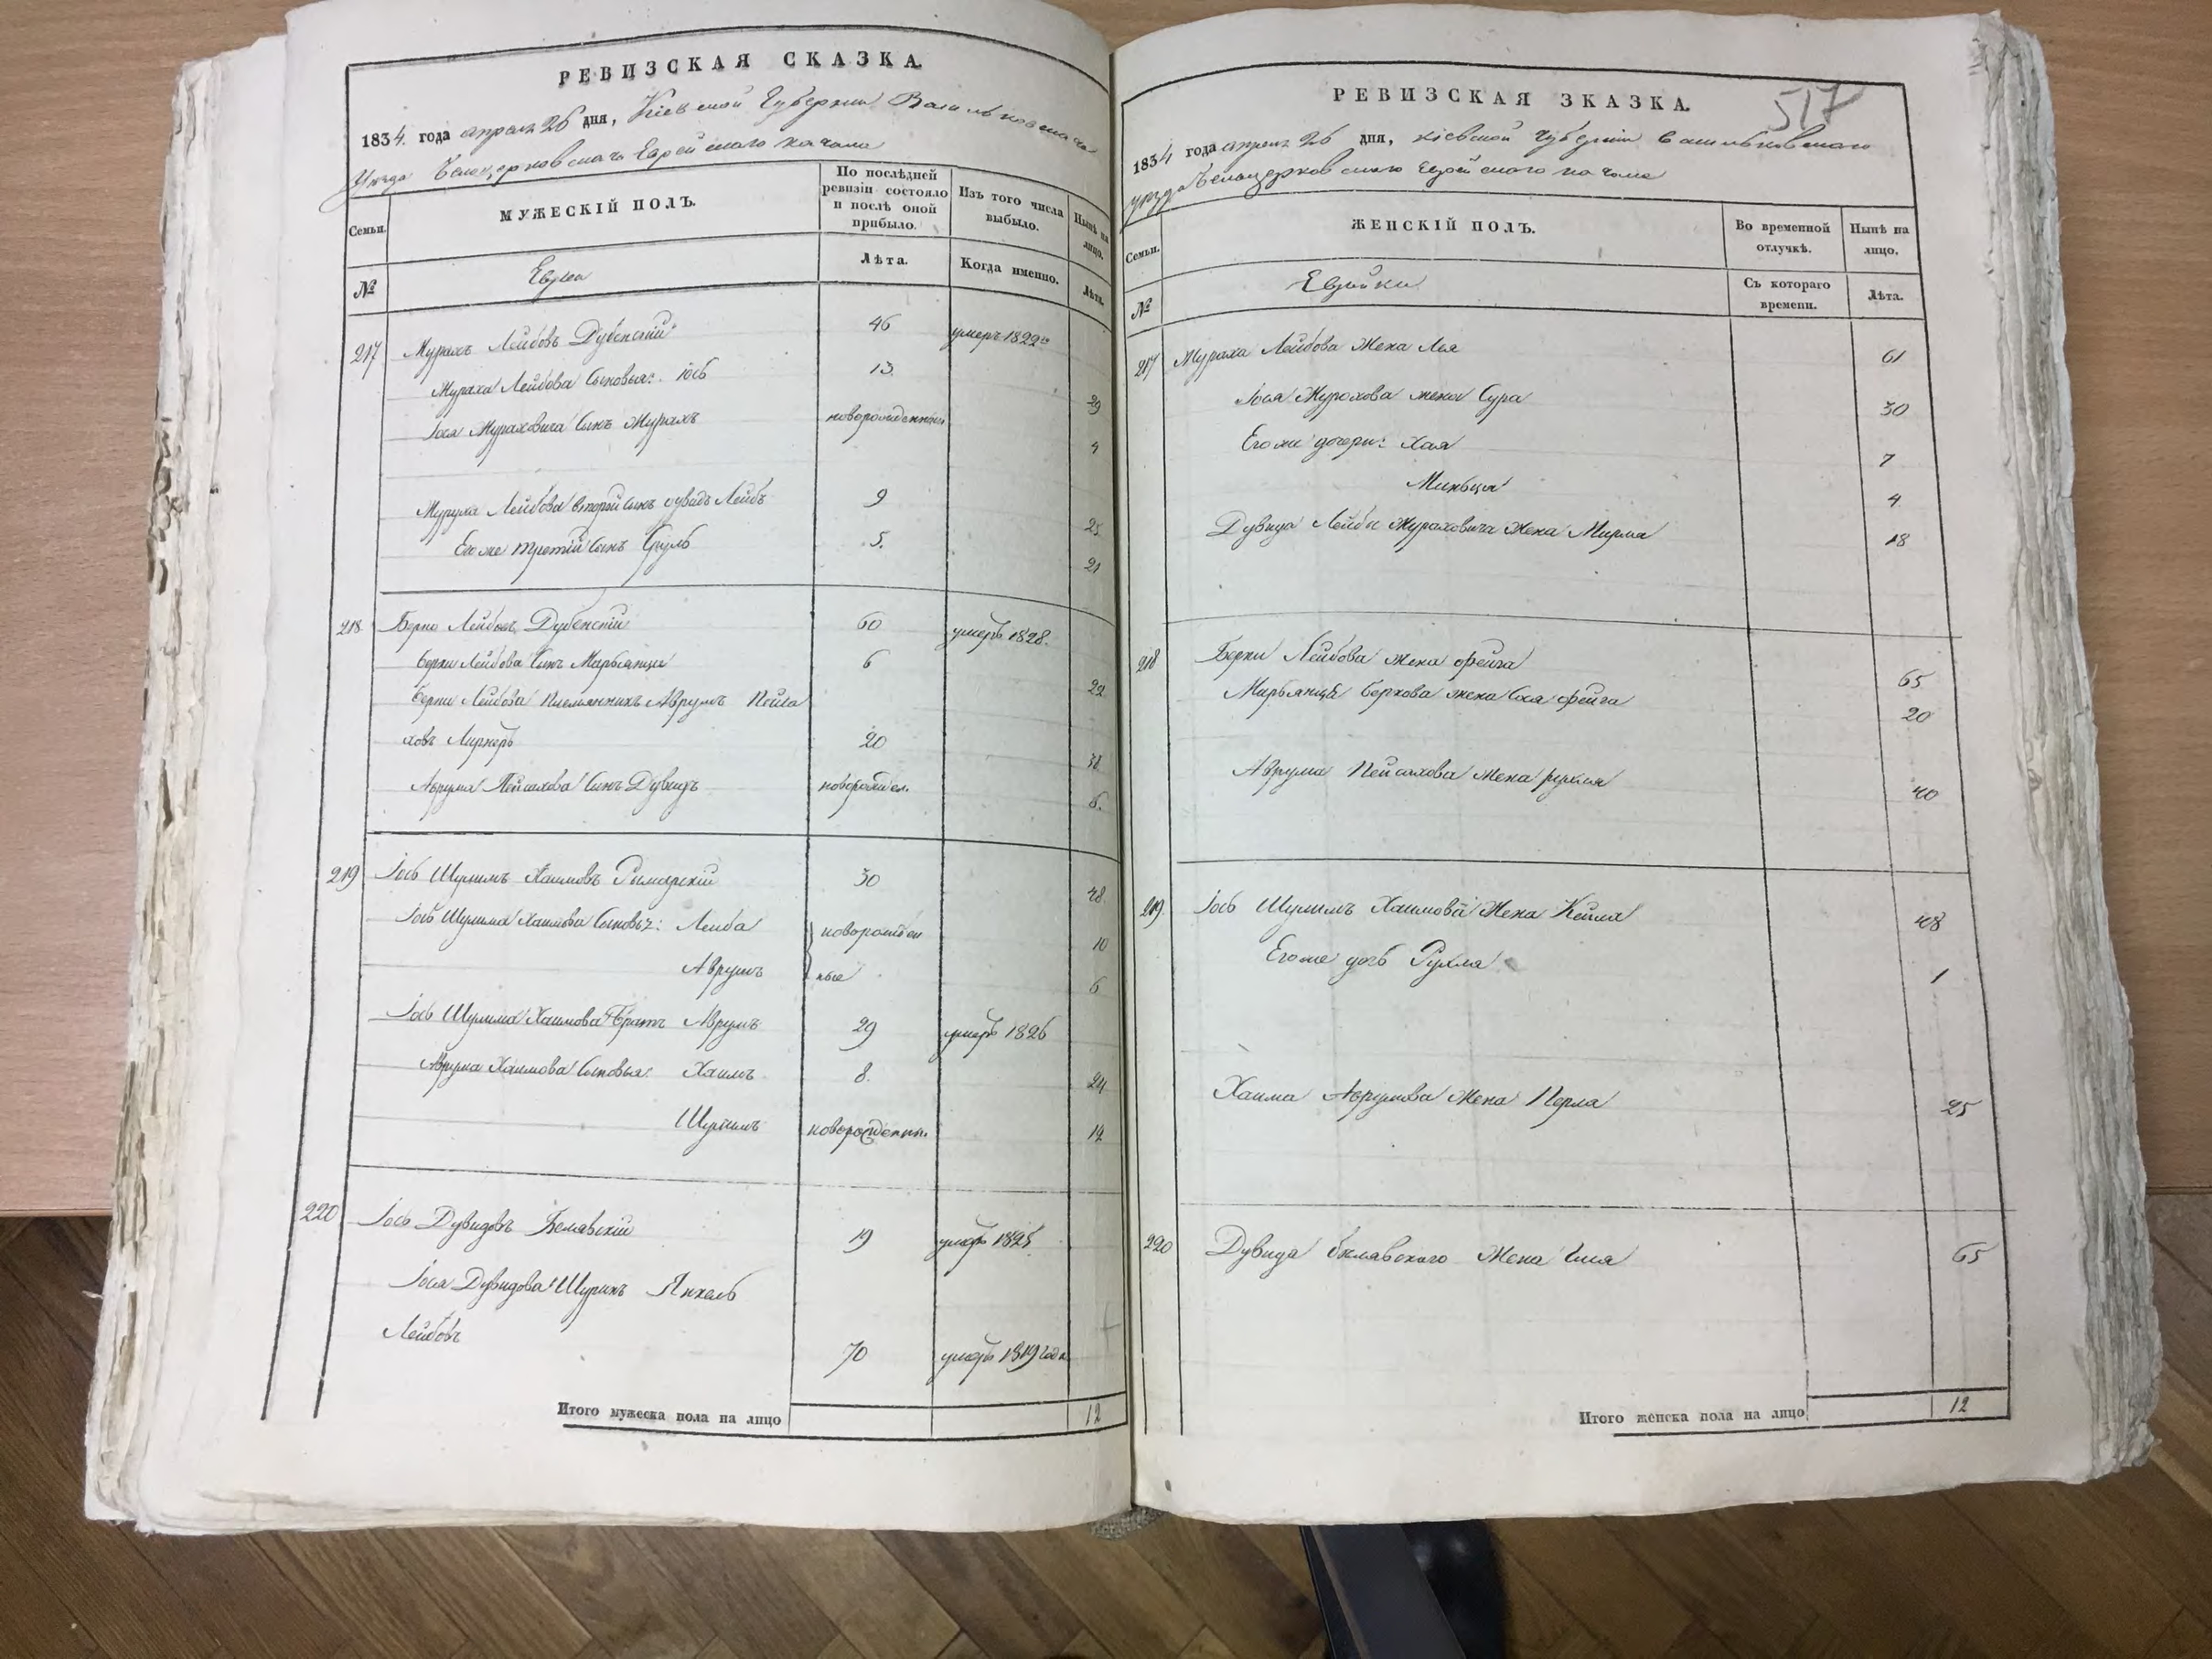 РЕВИЗСКАЯ СКАЗКА.
1834. года апреля 26 дня, Кіевской Губерніи Васильковскаго
Уезда Белоцерковскаго Еврейскаго кагала
Семьи.
МУЖЕСКІЙ ПОЛЪ.
По послѣдней ревизіи состояло и послѣ оной прибыло.
Изъ того числа выбыло.
Нынѣ на лицо.
№
Евреи
Лѣта.
Когда именно.
Лѣта.
217 Мурахъ Лейбовъ Дубенскій 46 умеръ 1822
Мураха Лейбова сыновья: Іось 13. 29
Іося Мураховича сынъ Мурахъ новорожденный 4
Мураха Лейбова второй сынъ Дувидъ Лейбъ 9 25
Его же третий сынъ Сруль 5. 21
218 Берко Лейбовъ Дубенскій 60 умеръ 1828.
Берки Лейбова сынъ Марьянци 6 22
Берки Лейбова племянникъ Аврумъ Пейса
ховъ Лирнеръ 20 38
Аврума Пейсахова сынъ Дувидъ новорожден. 6.
219 Іось Шулимъ Хаимовъ Рымарскій 30 48
Іось Шулима Хаимова сыновья: Лейба новорожден 10
Аврумъ ные 6
Іось Шулима Хаимова братъ Аврумъ 29 умеръ 1826
Аврума Хаимова сыновья: Хаимъ 8. 24
Шулимъ новорожденн. 14
220 Іось Дувидовъ Белявскій 19 умеръ 1825
Іося Дувидова Шуринъ Янкель
Лейбовъ 70 умеръ 1819 года
Итого мужеска пола на лицо 12
517
РЕВИЗСКАЯ ЗКАЗКА.
1834 года апреля 26 дня, кіевской губерніи васильковскаго
уезда Белоцерковскаго Еврейскаго кагала
Семьи.
ЖЕНСКІЙ ПОЛЪ.
Во временной отлучкѣ.
Нынѣ на лицо.
№
Еврейки
Съ котораго времени.
Лѣта.
217 Мураха Лейбова жена Лея 61
Іося Мурохова жена Сура 30
Его же дочери: Хая 7
Миньця 4
Дувида Лейбы Мураховича жена Мирма 18
218 Берки Лейбова жена Фейга 65
Марьянци Беркова жена Хая Фейга 20
Аврума Пейсахова жена Рухля 40
219. Іось Шулимъ Хаимова жена Кейла 48
Его же дочь Рухля 1
Хаима Аврумова жена Перла 25
220 Дувида Белявского жена Хая 65
Итого женска пола на лицо 12